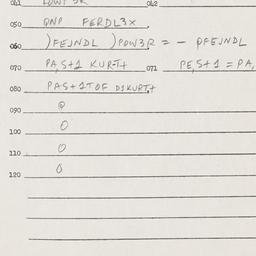 050 QNP FERDL3X
060 )FEJNDL )POW3R = - PFEJNDL
070 PA,S+1 KURT+ 071 PE,S+1 = PA,
080 PAS+1TOF D1KURT+
090 @
100 O
110 O
120 O